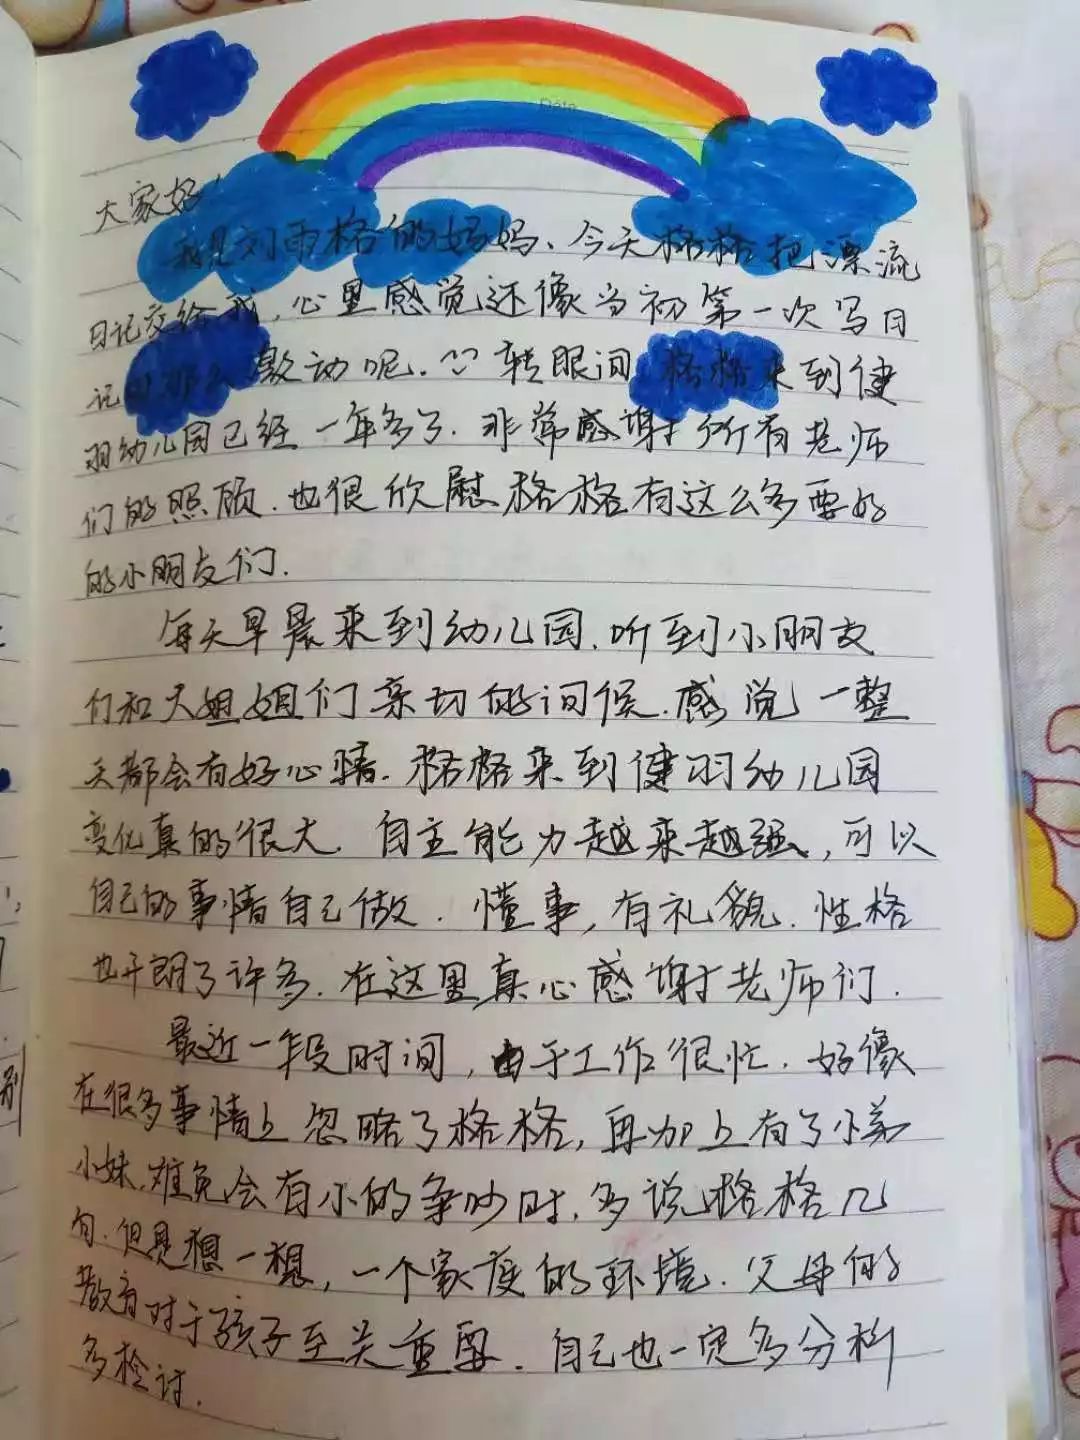 Date
大家好！
我是刘雨格的妈妈、今天格格把漂流
日记交给我，心里感觉还像当初第一次写日
记时那么激动呢.^^转眼间,格格来到健
羽幼儿园已经一年多了.非常感谢所有老师
们的照顾.也很欣慰格格有这么多要好
的小朋友们.
每天早晨来到幼儿园.听到小朋友
们和大姐姐们亲切的问候.感觉一整
天都会有好心情.格格来到健羽幼儿园
变化真的很大.自主能力越来越强,可以
自己的事情自己做.懂事,有礼貌.性格
也开朗了许多.在这里真心感谢老师们.
最近一段时间,由于工作很忙.好像
在很多事情上忽略了格格,再加上有了小
小妹.难免会有小的争吵时.多说格格几
句.但是想一想,一个家庭的环境.父母的
教育对于孩子至关重要.自己也一定多分析
多检讨.
别